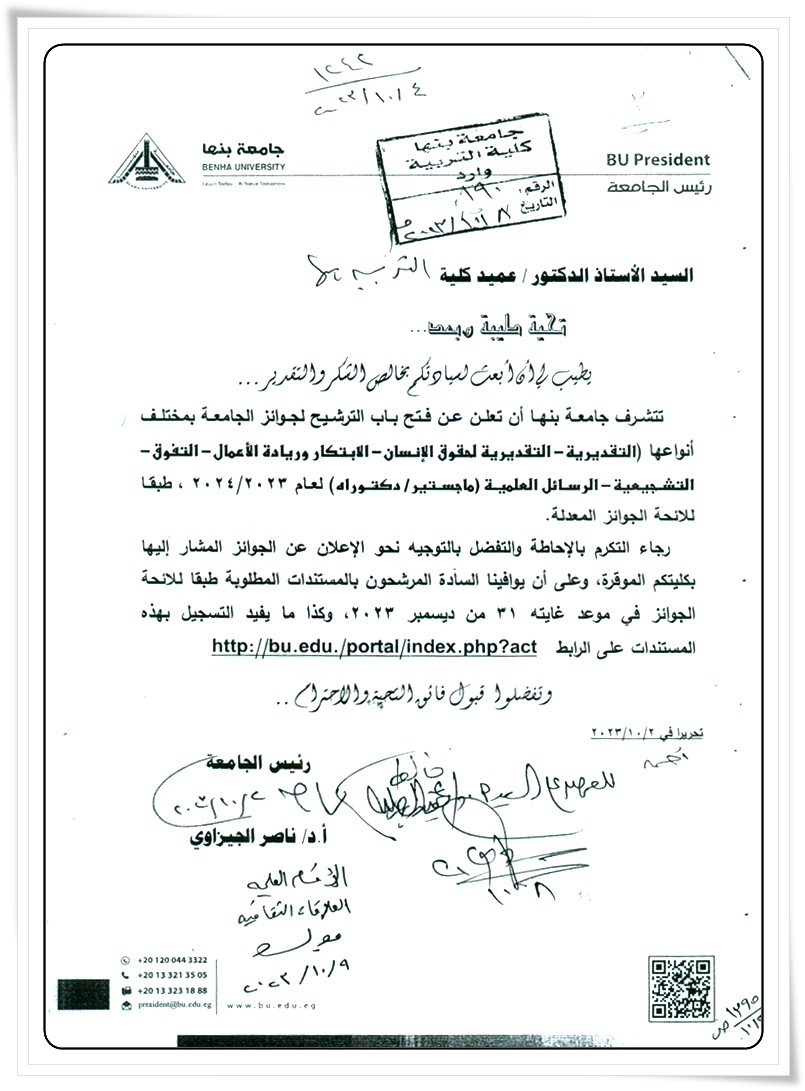 ١٢٤٢
٢٠٢٣/١٠/٤
جامعة بنها
BENHA UNIVERSITY
جامعة بنها
كلية التربية
وارد
الرقم:
التاريخ
BU President
رئيس الجامعة
السيد الأستاذ الدكتور / عميد كلية التربية
تحية طيبة وبعد...
يطيب لي أن أبعث لسيادتكم بخالص الشكر والتقدير...
تتشرف جامعة بنها أن تعلن عن فتح باب الترشيح لجوائز الجامعة بمختلف
أنواعها (التقديرية – التقديرية لحقوق الإنسان – الابتكار وريادة الأعمال – التفوق –
التشجيعية – الرسائل العلمية (ماجستير/ دكتوراه) لعام ٢٠٢٤/٢٠٢٣ ، طبقا
للائحة الجوائز المعدلة.
رجاء التكرم بالإحاطة والتفضل بالتوجيه نحو الإعلان عن الجوائز المشار إليها
بكليتكم الموقرة، وعلى أن يوافينا السادة المرشحون بالمستندات المطلوبة طبقا للائحة
الجوائز في موعد غايته ٣١ من ديسمبر ٢٠٢٣، وكذا ما يفيد التسجيل بهذه
المستندات على الرابط http://bu.edu./portal/index.php?act
وتفضلوا قبول فائق التحية والاحترام ..
تحريرا في ٢٠٢٣/١٠/٢
رئيس الجامعة
أ.د/ ناصر الجيزاوي
العلاقات الثقافيه
٢٠٢٣/١٠/٩
+20 120 044 3322
+20 13 321 35 05
+20 13 323 18 88
president@bu.edu.eg
www.bu.edu.eg